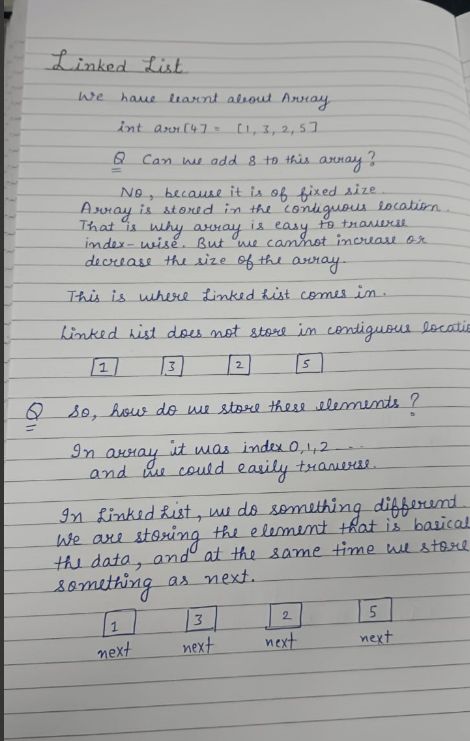 Linked List
We have learnt about Array
int arr[4] = [1, 3, 2, 5]
Q Can we add 8 to this array?
No, because it is of fixed size.
Array is stored in the contiguous location.
That is why array is easy to traverse
index-wise. But we cannot increase or
decrease the size of the array.
This is where Linked List comes in.
Linked List does not store in contiguous locatio
1 3 2 5
Q So, how do we store these elements?
In array it was index 0, 1, 2 ...
and we could easily traverse.
In Linked List, we do something different.
We are storing the element that is basical
the data, and at the same time we store
something as next.
1 3 2 5
next next next next